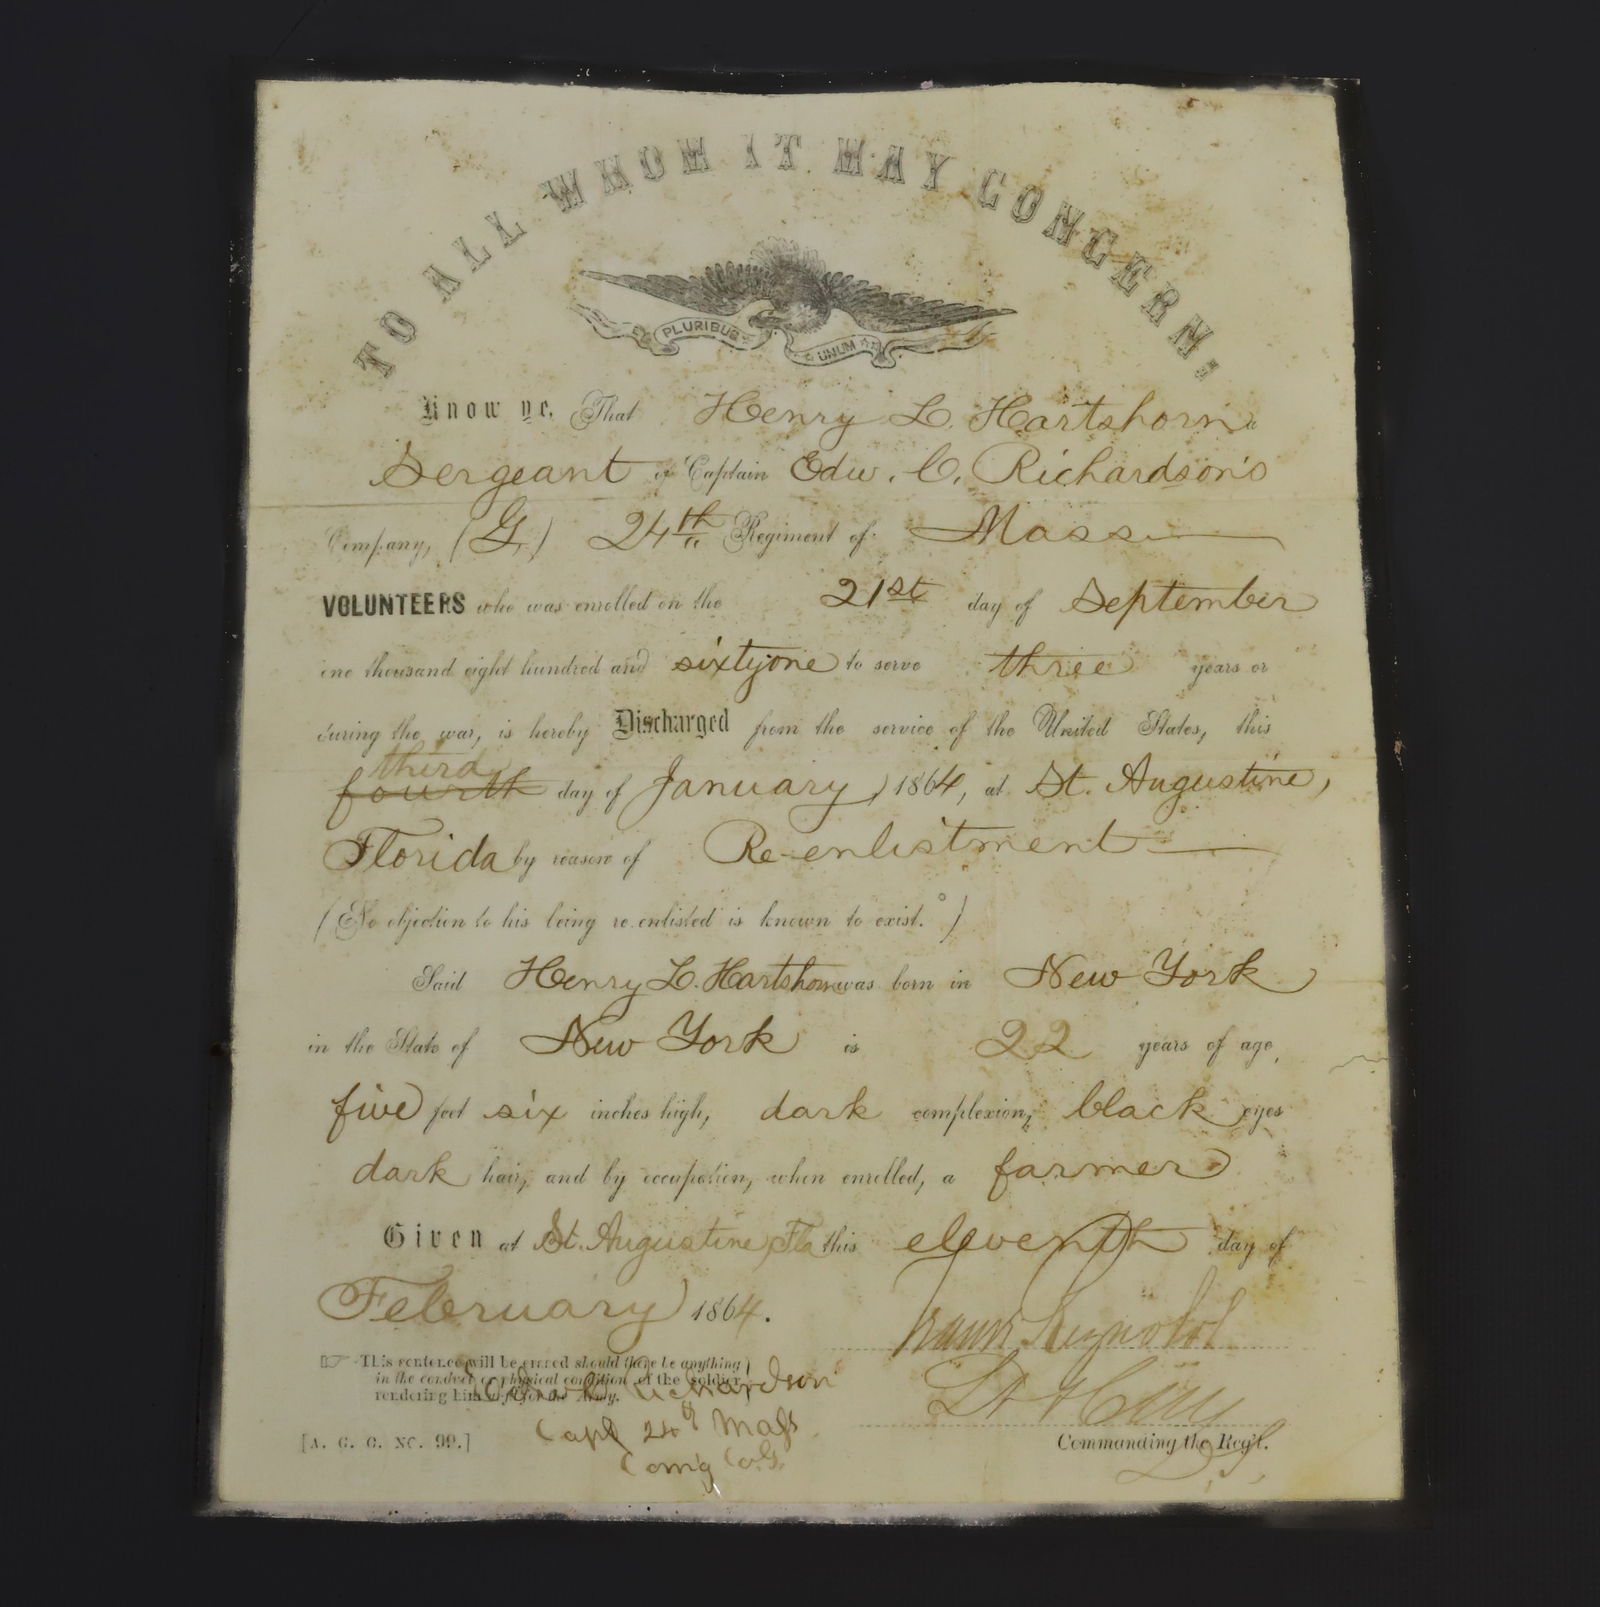 TO ALL WHOM IT MAY CONCERN;
PLURIBUS UNUM
Know ye, That Henry L. Hartshorn a
Sergeant of Captain Edw. C. Richardson's
Company, (G,) 24th Regiment of Mass.
VOLUNTEERS who was enrolled on the 21st day of September
one thousand eight hundred and sixtyone to serve three years or
during the war, is hereby Discharged from the service of the United States, this
third
fourth day of January, 1864, at St. Augustine,
Florida by reason of Re-enlistment
(No objection to his being re-enlisted is known to exist.°)
Said Henry L. Hartshorn was born in New York
in the State of New York is 22 years of age,
five feet six inches high, dark complexion, black eyes
dark hair, and by occupation, when enrolled, a farmer
Given at St. Augustine, Fla this eleventh day of
February 1864.
☞ This sentence will be erased should there be anything
in the conduct or physical condition of the soldier
rendering him unfit for the Army.
Richardson
Capt 24th Mass
Comg Co. G.
[A. G. O. No. 99.]
Lt
Commanding the Reg't.